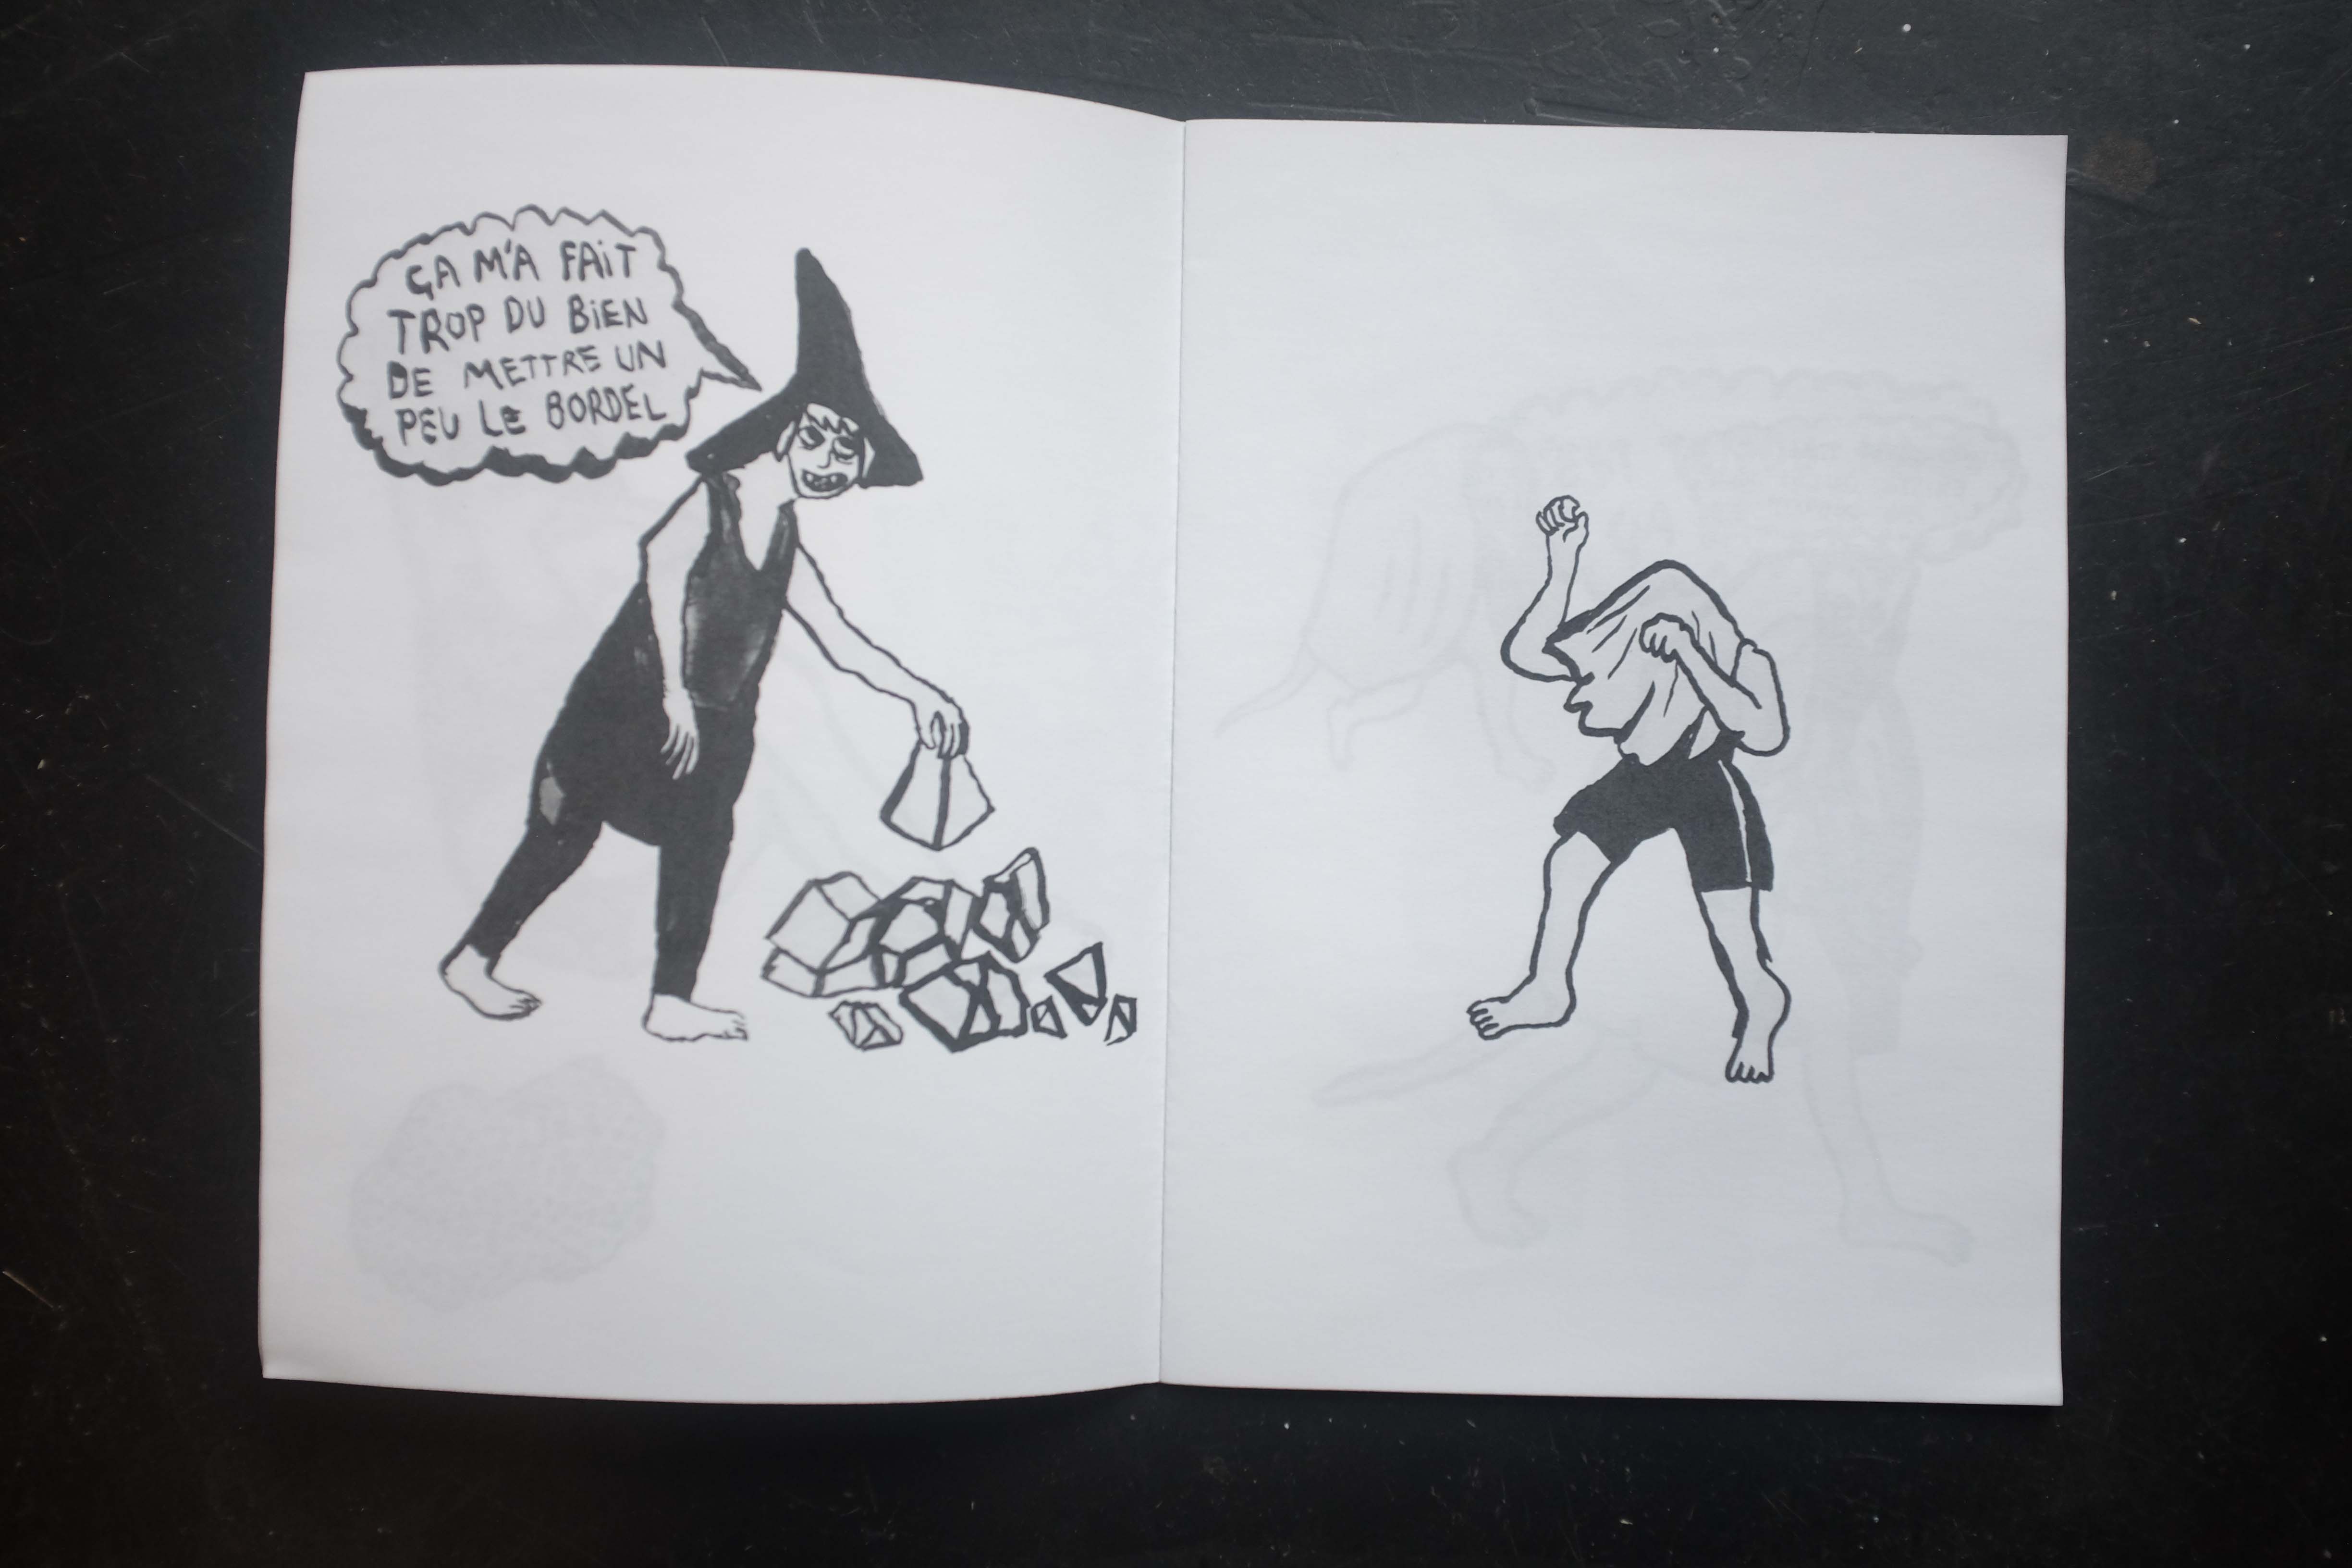 ÇA M'A FAIT
TROP DU BIEN
DE METTRE UN
PEU LE BORDEL